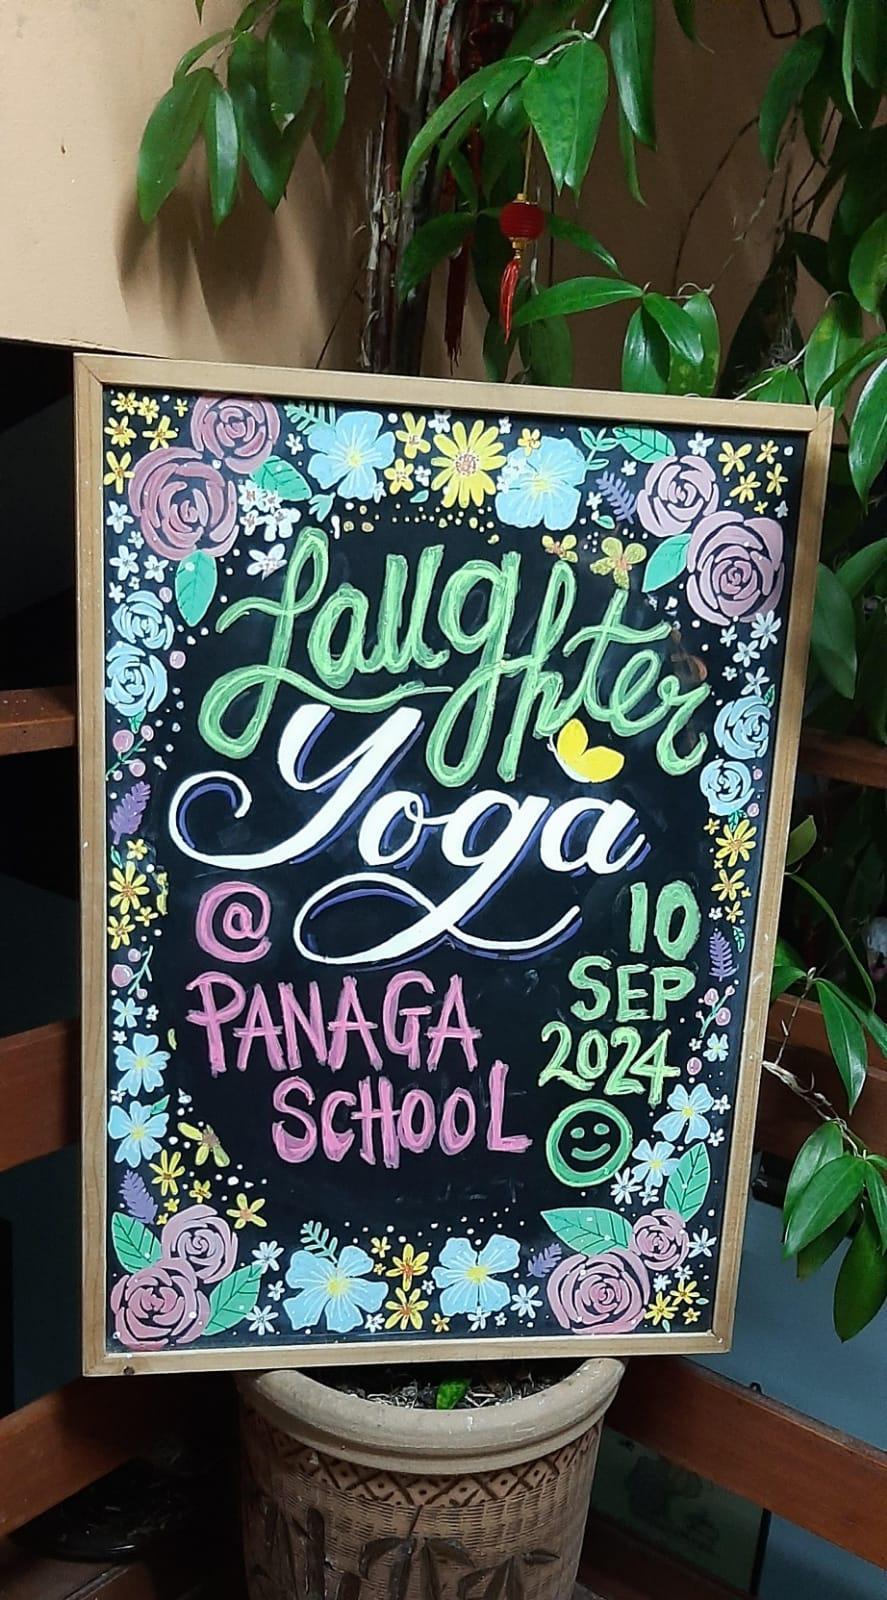 Laughter
Yoga
@
PANAGA
SCHOOL
10
SEP
2024